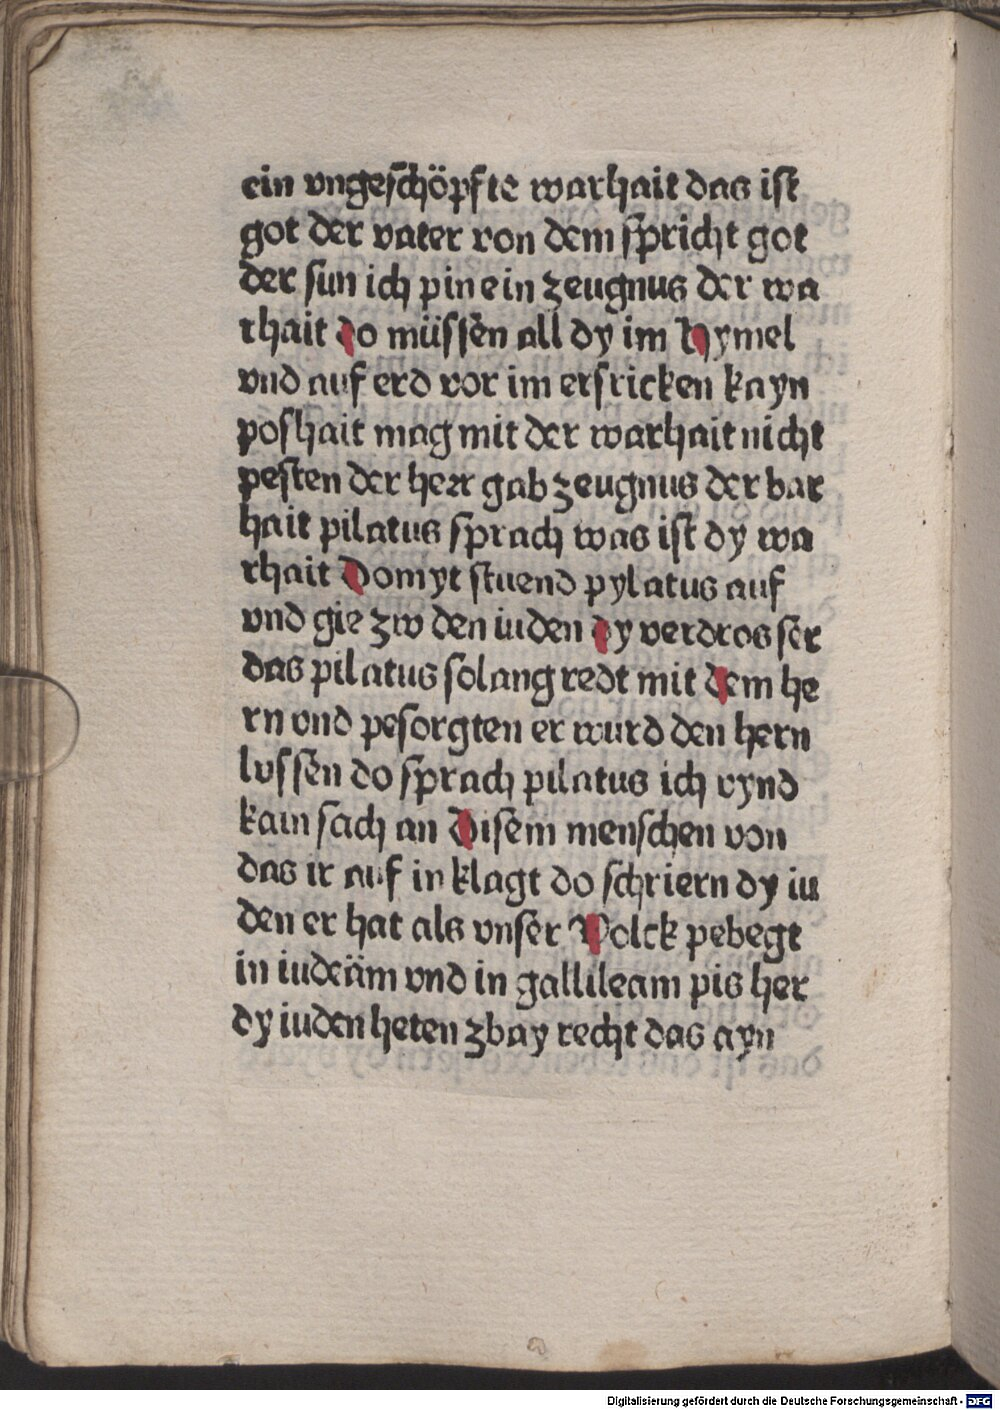 ein vngeschöpfte warhait das ist
got der vater von dem spricht got
der sun ich pin ein zeugnus der wa
rhait do müssen all dy im hymel
vnd auf erd vor im ersricken kayn
poshait mag mit der warhait nicht
pesten der herr gab zeugnus der bar
hait pilatus sprach was ist dy wa
rhait Domyt stuend pylatus auf
vnd gie zw den iuden dy verdros ser
das pilatus solang redt mit dem he
rn vnd pesorgten er wurd den hern
lossen do sprach pilatus ich vynd
kain sach an Disem menschen von
das ir auf in klagt do schriern dy iu
den er hat als vnser Volck pebegt
in iudeäm vnd in gallileam pis her
dy iuden heten zbay recht das ayn
Digitalisierung gefördert durch die Deutsche Forschungsgemeinschaft - DFG